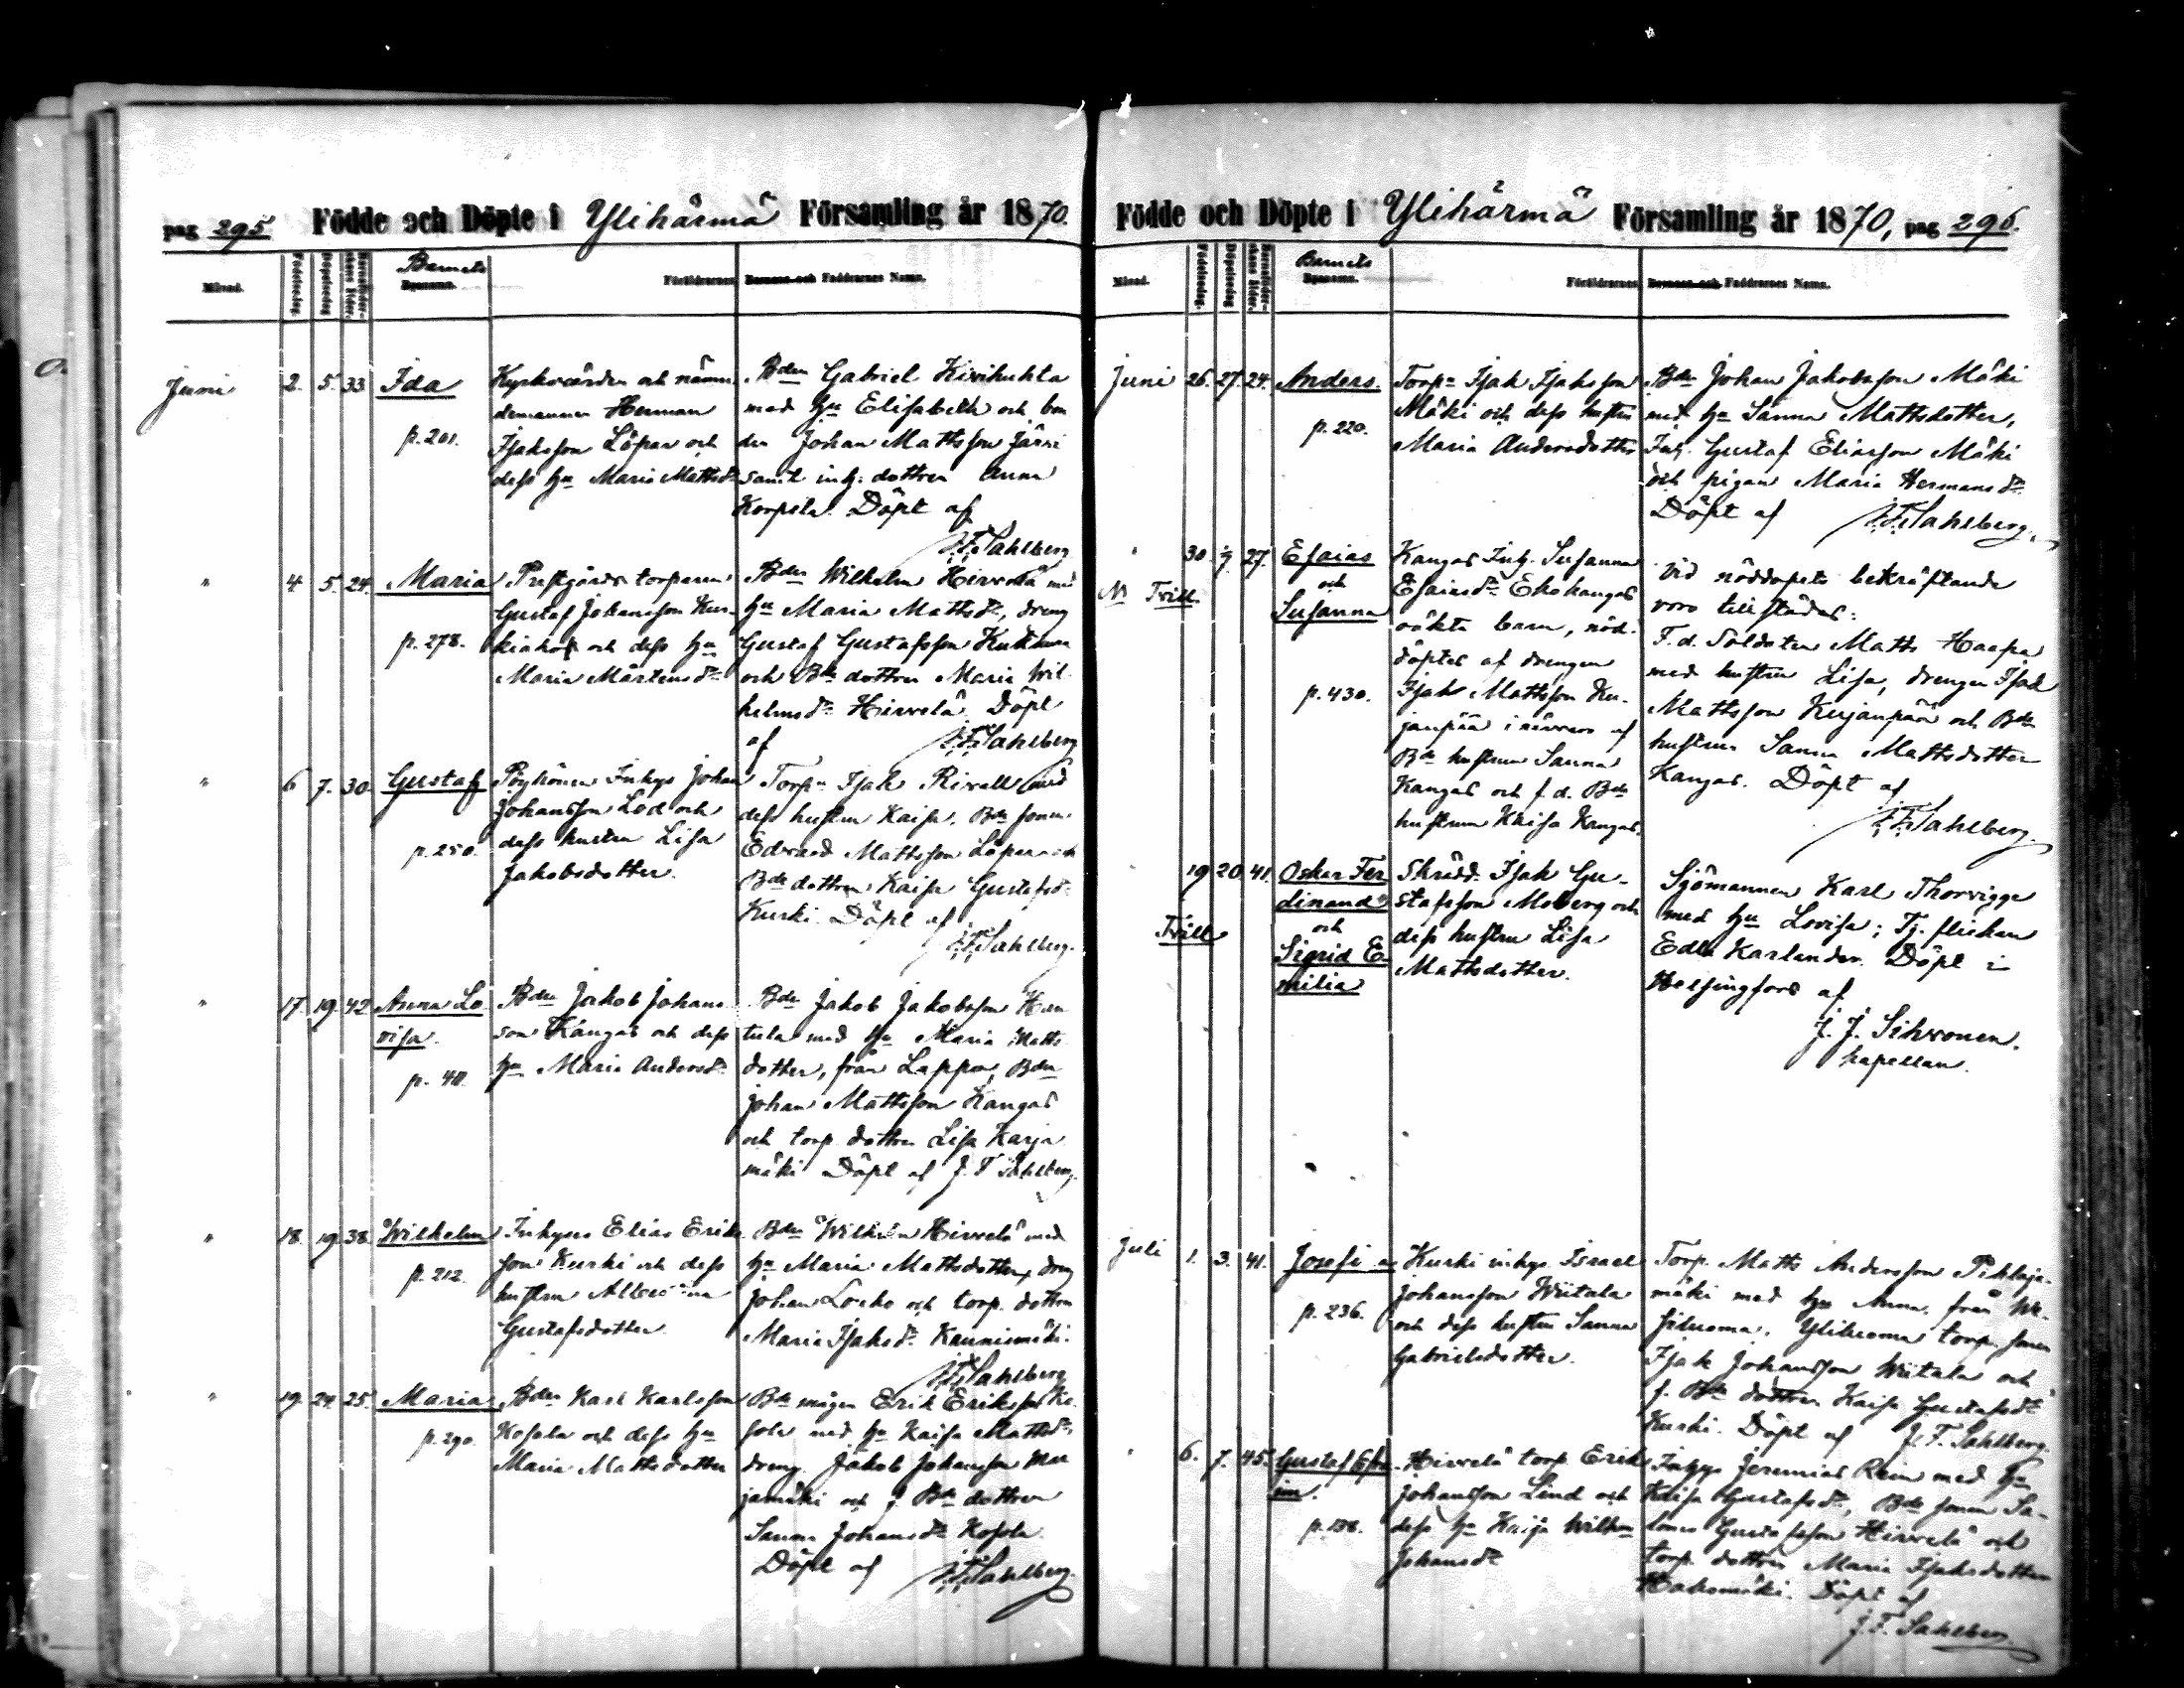 pag 295 Födde och Döpte i Ylihärmä Församling år 1870.
Månad.
Födelsedag.
Döpelsedag
Barnets
Föräldrarnes
Barnens och Faddrarnes Namn.
Juni 2. 5. 33. Ida
p. 201.
Kyrkovärden och näm
demannen Herman
Isaksson Löpar och
dess hu Maria Mattsdr
Bden Gabriel Kivihuhta
med hu Elisabeth och bon
den Johan Mattsson Järvi
samt inh: dottren Anna
Korpela. Döpt af
J.F. Sahlberg
" 4 5. 24. Maria
p. 278.
Prestgårds torparen
Gustaf Johansson
och dess hu
Maria Mårtensdr
Bden Wilhelm Hirvelä med
hu Maria Mattsdr, dreng
Gustaf Gustafsson
och Bde dottren Maria Wil
helmsdr Hirvelä. Döpt
af J.F. Sahlberg
" 6 7. 30. Gustaf
p. 250.
Pöykönen Inhys Johan
Johansson Lod och
dess hustru Lisa
Jakobsdotter.
Torpn Isak med
dess hustru Kaisa. Bde sonen
Edvard Mattsson Löpar och
Bde dottren Kaisa Gustafsdr
Kurki. Döpt af
J.F. Sahlberg.
" 17. 19. 42 Anna Lo
visa.
p. 40.
Bden Jakob Johans
son Kangas och dess
hu Maria Andersdr
Bden Jakob Jakobsson Han
tula med hu Maria Matts
dotter, från Lappo, Bden
Johan Mattsson Kangas
och torp. dottren Lisa Karja
mäki Döpt af J. F Sahlberg
" 18. 19. 38. Wilhelm
p. 212.
Inhyses Elias Erik
son Kurki och dess
hustru
Gustafsdotter.
Bden Wilhelm Hirvelä med
hu Maria Mattsdotter, dreng
Johan och torp. dottren
Maria Isaksdr Kaunismäki.
J.F. Sahlberg
" 19. 24. 25. Maria
p. 290.
Bden Karl Karlsson
Kosola och dess hu
Maria Mattsdotter
Bde mågen Erik Eriksson Ko
sola med hu Kaisa Mattsdr,
dreng. Jakob Johansson
och f. Bde dottren
Sanna Johansdr Kosola
Döpt af J.F. Sahlberg.
Födde och Döpte i Ylihärmä Församling år 1870, pag 296.
Månad.
Födelsedag.
Döpelsedag
Barnets
Föräldrarnes
Barnens och Faddrarnes Namn.
Juni 26. 27. 24. Anders.
p. 220.
Torpn Isak Isaksson
Mäki och dess hustru
Maria Andersdotter
Bden Johan Jakobsson Mäki
med hu Sanna Mattsdotter,
Inh. Gustaf Eliasson Mäki
och pigan Maria Hermansdr
Döpt af J.F. Sahlberg.
" 30. 27. Esaias
och
Susanna
Tvill
p. 430.
Kangas Inh. Susanna
Esaiasdr Ekokangas
oäkta barn, nöd
döptes af drengen
Isak Mattsson Ku-
janpää i närvaro af
Bde hustrun Sanna
Kangas och f. d. Bde
hustrun Kaisa Kangas.
Vid nöddopets bekräftande
voro tillstädes:
F. d. Soldaten Matts Haapa
med hustru Lisa, drengen Isak
Mattsson Kujanpää och Bde
hustrun Sanna Mattsdotter
Kangas. Döpt af
J.F. Sahlberg.
19 20 41. Oskar Fer
dinand
och
Sigrid E-
milia
Tvill
Skrädd. Isak Gu-
stafsson Moberg och
dess hustru Lisa
Mattsdotter.
Sjömannen Karl Thorvigge
med hu Lovisa; Tj. flickan
Edla Karlander. Döpt i
Helsingfors af
J. J. Sihvonen.
kapellan.
Juli 1. 3. 41. Josefina
p. 236.
Kurki inhys Israel
Johansson Wiitala
och dess hustru Sanna
Gabrielsdotter.
Torp. Matts Andersson Pihlaja-
mäki med hu Anna, från
Ylihuoma torp. sonen
Isak Johansson Wiitala och
f. Bde dottren Kaisa Gustafsdr
Kurki. Döpt af J. F. Sahlberg.
" 6. 7. 45. Gustaf Efra
im.
p. 138.
Hirvelä torp Erik
Johansson Lind och
dess hu Kaisa
Johansdr
Inhys Jeremias Rein med hu
Kaisa Gustafsdr, Bde sonen Sa-
lomo Gustafsson Hirvelä och
torp. dottren Maria Isaksdotter
Hakomäki. Döpt af
J. F. Sahlberg